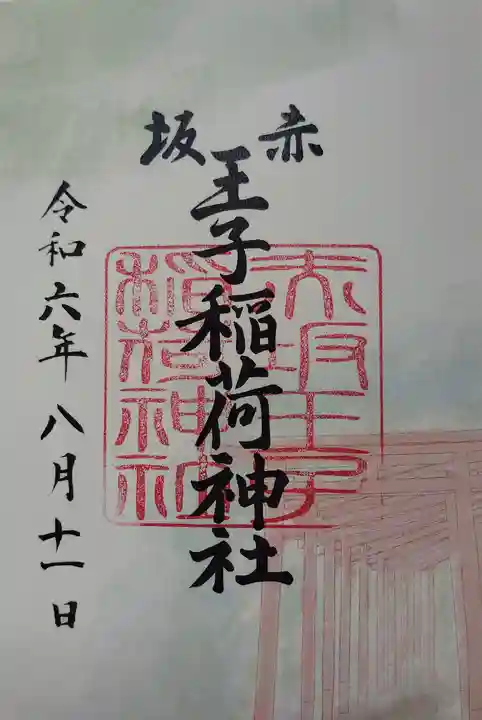 赤坂
王子稲荷神社
令和六年八月十一日